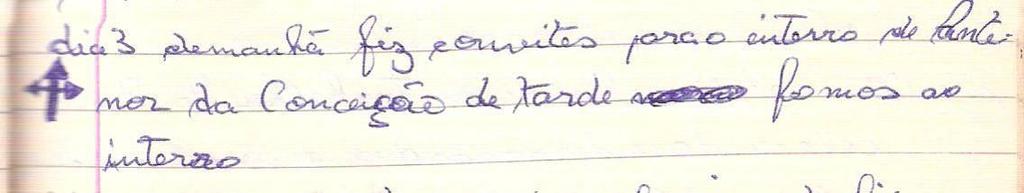 dia 3 demanhã fiz convites para o interro de Ante-
nor da Conceição de tarde fomos ao
interro